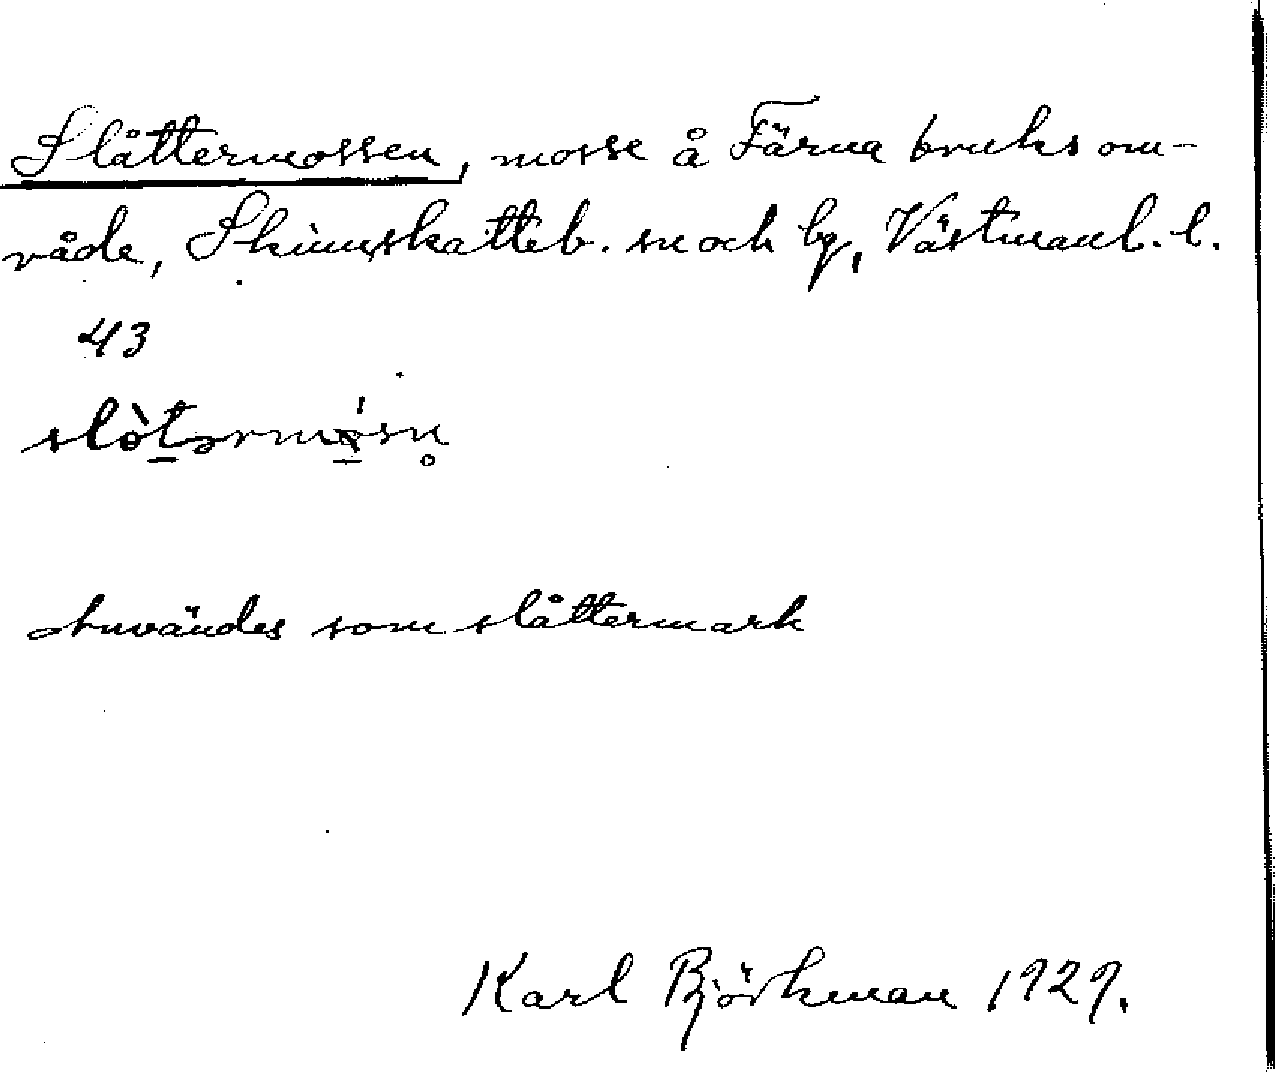 Slåttermossen, mosse å Färna bruks om-
råde, Skinnskatteb. sn och bg, Västmanl. l.
43
slòtərmósn̥
Användes som slåttermark
Karl Björkman 1929.